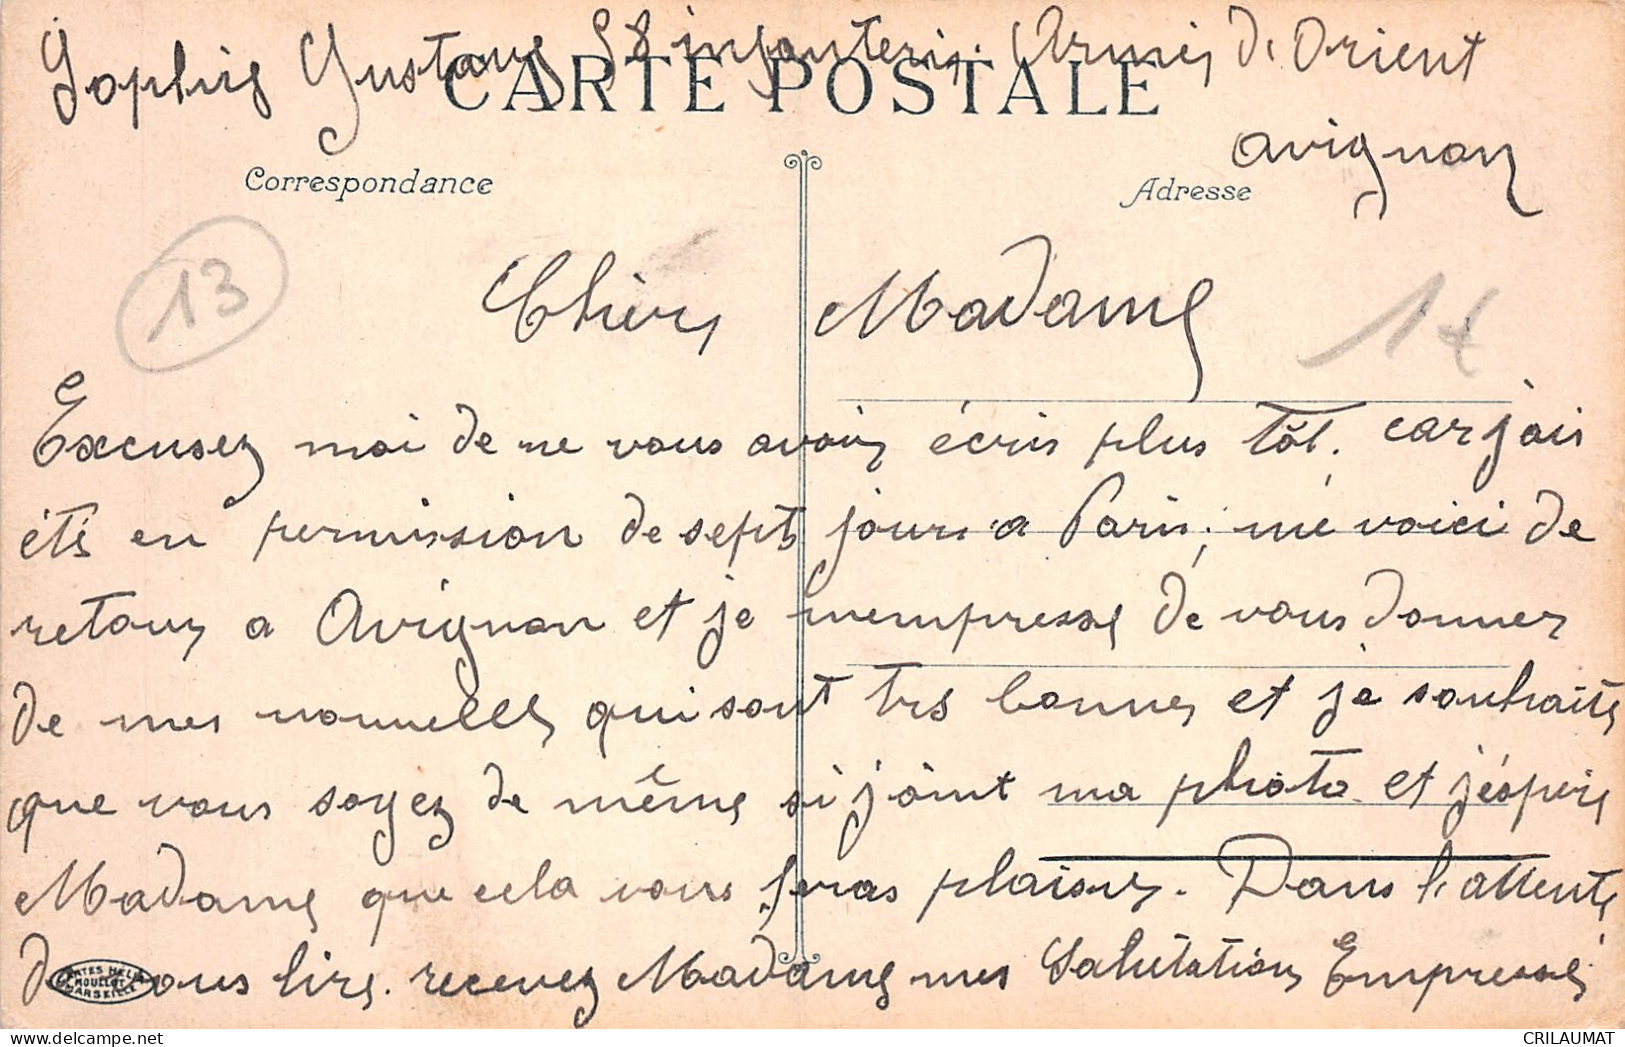 Gustave 58 infanterie. Armée d'Orient
CARTE POSTALE
avignon
Correspondance
Adresse
13
Chère Madame
1€
Excusez moi de ne vous avoir écris plus tôt. car j'ais
été en permission de sept jours a Paris; me voici de
retour a Avignon et je m'empresse de vous donner
de mes nouvelles qui sont trs bonnes et je souhaite
que vous soyez de même si joint ma photo et j'éspére
Madame que cela vous feras plaisir. Dans l'attente
de vous lire. recevez Madame mes Salutation Empressé
CARTES HELIO
MOULLOT
MARSEILLE
CRILAUMAT